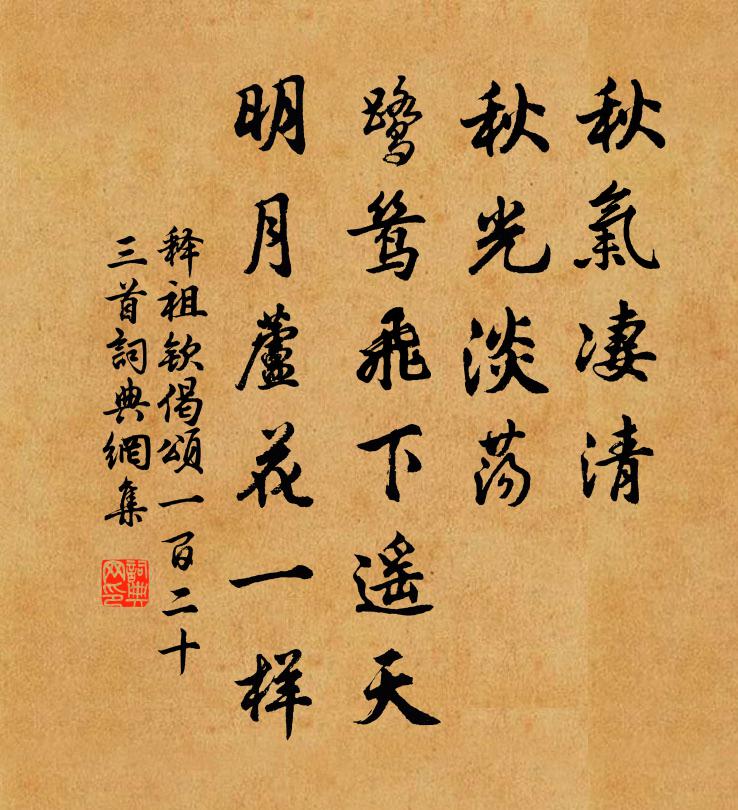 秋氣凄清
秋光淡蕩
鷺鶿飛下遥天
明月蘆花一样
释祖欽偈頌一百二十
三首詞典網集
詞典网印